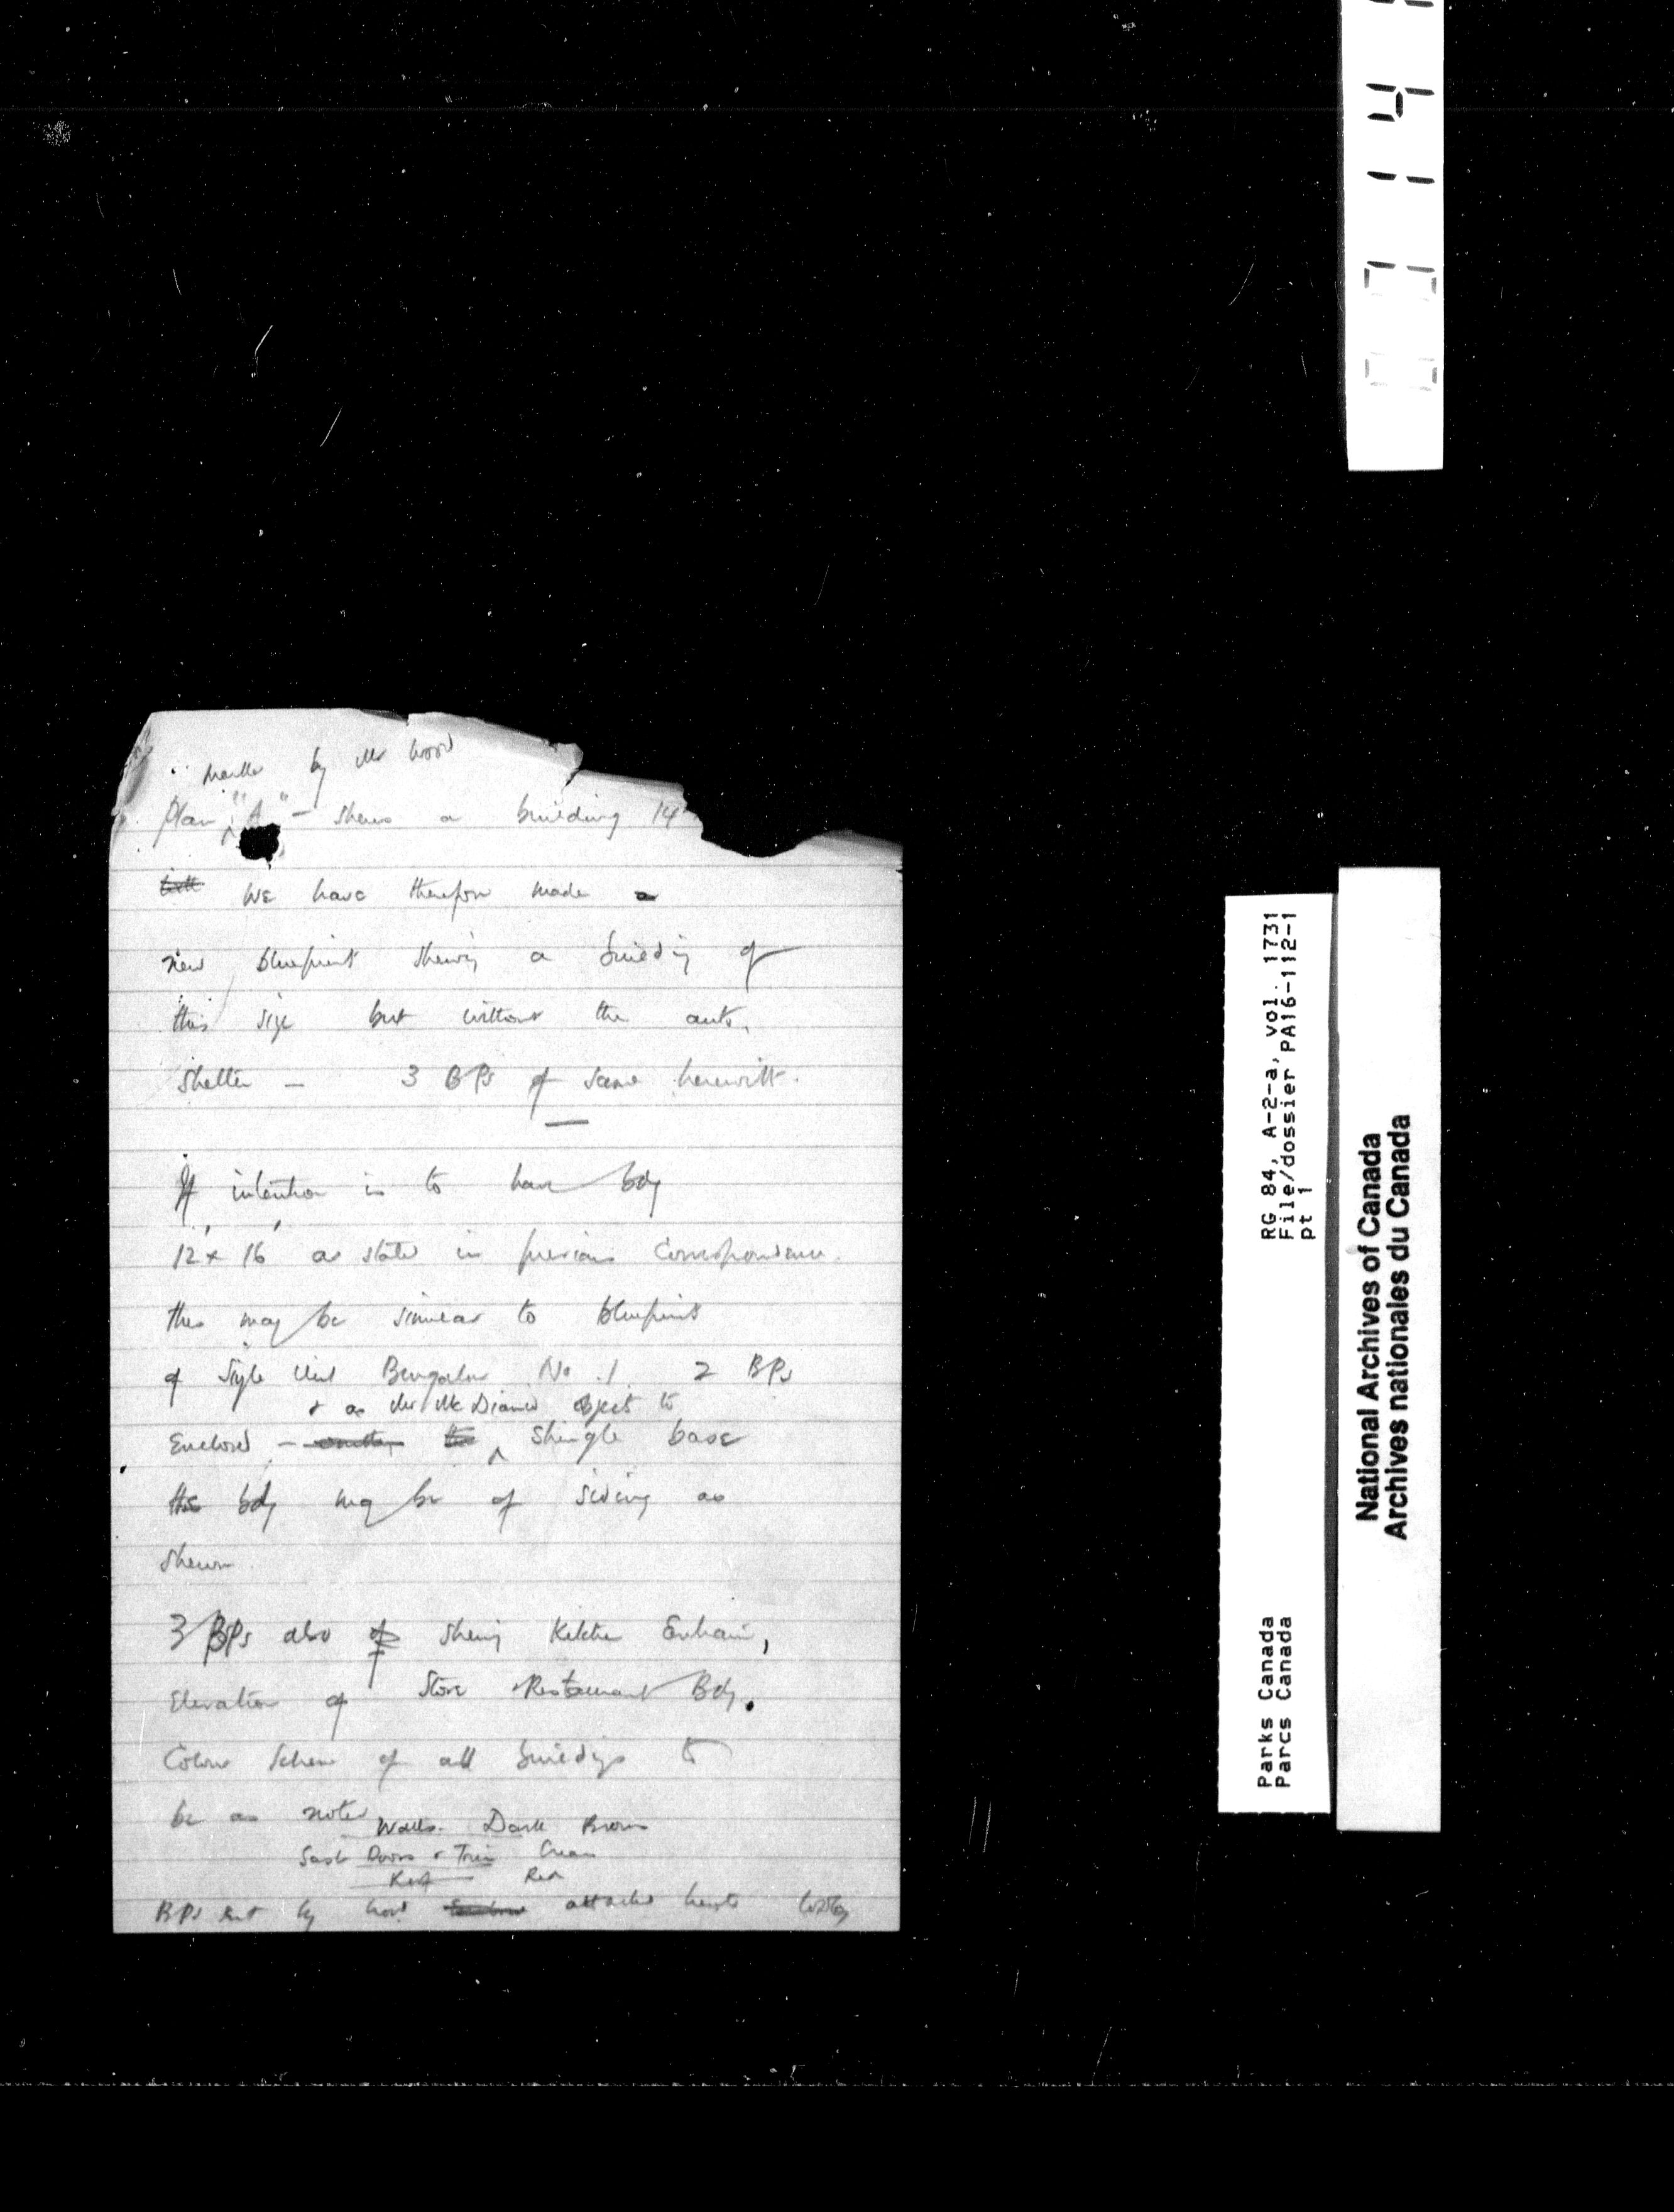 by Mr Wood
Plan "A" - shews a building 14
We have therefore made a
new blueprint shewing a building of
this size but without the auto.
shelter - 3 BPs of same herewith.
If intention is to have bdg
12' x 16' as stated in previous correspondence.
this may be similar to blueprint
of Single Unit Bungalow No. 1 2 BPs
& as Mr McDiarmid objects to
Enclosed - shingle base
this bdg may be of siding as
shewn.
3 BPs also of shewing Kitchen
Elevation of Store Restaurant Bdg.
Colour scheme of all buildings to
be as noted
Walls. Dark Brown
Sash Doors & Trim Cream
Roof Red
BPs sent by Wood attached hereto
RG 84, A-2-a, vol. 1731
File/dossier PA16-112-1
pt 1
Parks Canada
Parcs Canada
National Archives of Canada
Archives nationales du Canada